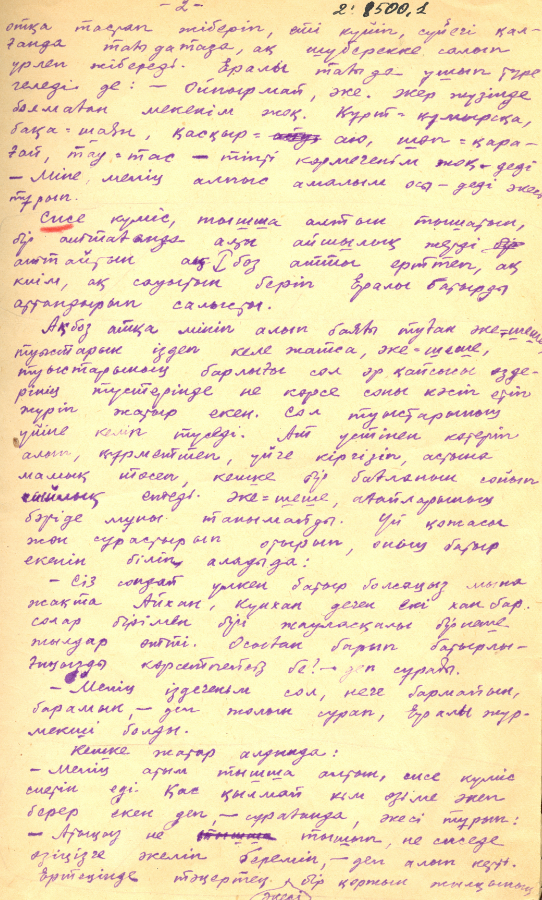 - 2 -
2: 8500,1
отқа тастап жіберіп, еті күйіп, сүйегі қал-
ғанда тағы да таза, ақ шүберекке салып
үрлеп жібереді. Ералы тағы да ұшып түре
геледі де: – Ойпырмай, әке. Жер жүзінде
болмаған мекенім жоқ. Құрт=құмырсқа,
бақа=шаян, қасқыр= аю, шөп=қара-
ғай, тау=тас – тіпті көрмегенім жоқ – деді
– Міне, менің алпыс амалым осы – деді әкесі
тұрып.
Сисе күміс, тышша алтын тышатын,
бір аттағанда алты айшылық жерді
аттайтын ақ боз атты ерттеп, ақ
киім, ақ сауытын беріп Ералы батырды
аттандырып салысты.
Ақбоз атқа мініп алып баяғы туған әке=шеше,
туыстарын іздеп келе жатса, әке=шеше,
туыстарының барлығы сол әр қайсысы өзде-
рінің түстерінде не көрсе соны кәсіп етіп
жүріп жатыр екен. Сол туыстарының
үйіне келіп түседі. Ат үстінен көтеріп
алып, құрметтеп, үйге кіргізіп, астына
мамық төсеп, кешке бір бағланын сойып
сыйлық етеді. Әке=шеше, ағайларының
бәріде мұны танымайды. Үй қожасы
жөн сұрастырып отырып, оның батыр
екенін біліп алады да:
– Сіз сондай үлкен батыр болсаңыз мына
жақта Айхан, Күнхан деген екі хан бар.
Солар бірімен бірі жауласқалы бірнеше
жылдар өтті. Осыған барып батырлы-
ғыңызды көрсетпейсіз бе? – деп сұрады.
– Менің іздегенім сол, неге бармайын,
барамын, – деп жолын сұрап, Ералы жүр-
мекші болды.
Кешке жатар алдында:
– Менің атым тышша алтын, сисе күміс
сиетін еді. Қас қылмай кім өзіме әкеп
берер екен деп, – сұрағанда, әкесі тұрып:
– Атыңыз не тышып, не сиседе
өзіңізге әкеліп беремін, – деп алып кетті.
Ертеңінде таңертең әкесі бір қоржын жылқының